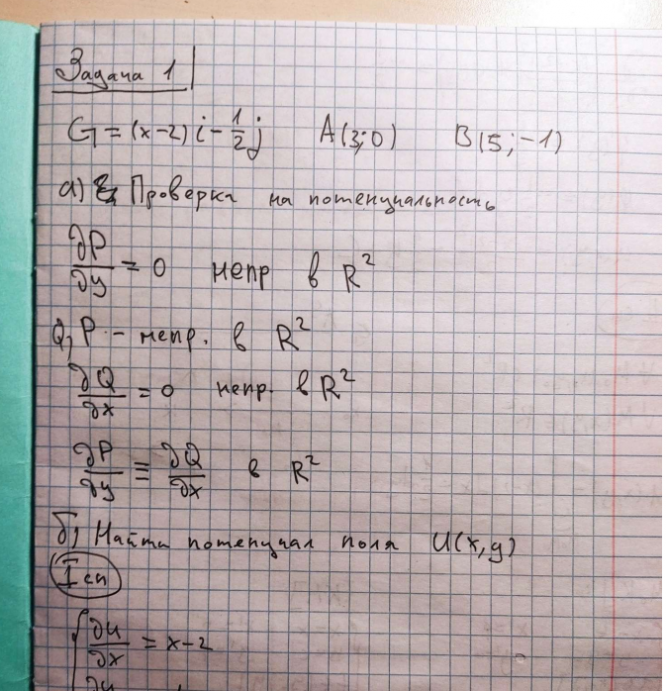 Задача 1
G = (x-2) i - 1/2 j A(3;0) B(5;-1)
а) Проверка на потенциальность
∂P/∂y = 0 непр в R²
Q, P - непр. в R²
∂Q/∂x = 0 непр. в R²
∂P/∂y ≡ ∂Q/∂x в R²
б) Найти потенциал поля U(x,y)
I сп
∂u/∂x = x-2
∂u